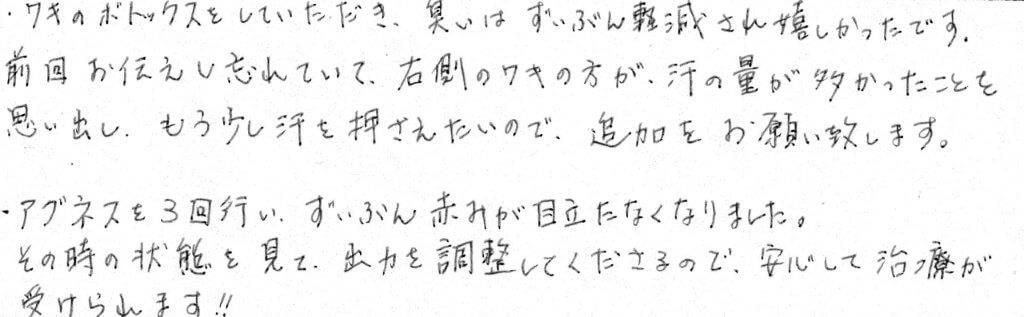 ・ワキのボトックスをしていただき、臭いは ずいぶん軽減され嬉しかったです。
前回 お伝えし忘れていて、右側のワキの方が、汗の量が多かったことを
思い出し、もう少し汗を押さえたいので、追加をお願い致します。
・アグネスを3回行い、ずいぶん赤みが目立たなくなりました。
その時の状態を見て、出力を調整してくださるので、安心して治療が
受けられます!!